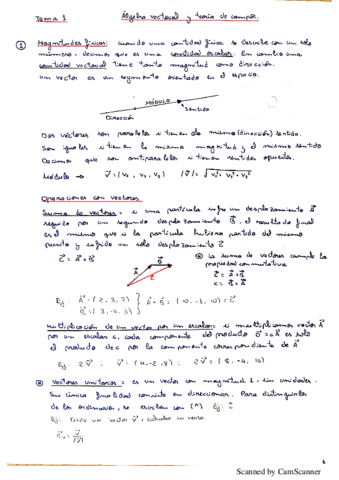 Tema 1
Álgebra vectorial y teoría de campos.
1 Magnitudes físicas: cuando una cantidad física se describe con un solo
número, decimos que es una cantidad escalar. En cambio una
cantidad vectorial tiene tanto magnitud como dirección.
Un vector es un segmento orientado en el espacio.
MÓDULO
Sentido
Dirección
Dos vectores son paralelos si tienen la misma (dirección) sentido.
Son iguales si tienen la misma magnitud y el mismo sentido
Decimos que son antiparalelos si tienen sentidos opuestos.
Módulo →
Operaciones con vectores.
Suma de vectores: si una partícula sufre un desplazamiento A
seguido por un segundo desplazamiento B, el resultado final
es el mismo que si la partícula hubiera partido del mismo
punto y sufrido un solo desplazamiento C
C = A + B
La suma de vectores cumple la
propiedad conmutativa
C = A + B
C = B + A
Multiplicación de un vector por un escalar: si multiplicamos vector A
por un escalar c, cada componente del producto
el producto de c por la componente correspondiente de A
Vectores unitarios: es un vector con magnitud 1, sin unidades.
Su única finalidad consiste en direccionar. Para distinguirlos
de los ordinarios, se escriben con (^) Ej:
Ej: Dado un vector V, calcular su verso.
Scanned by CamScanner